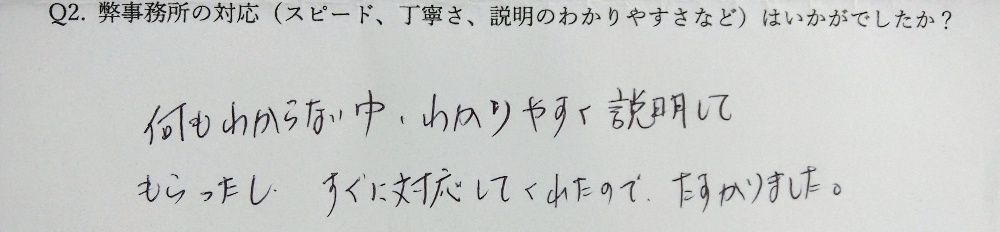 Q2. 弊事務所の対応（スピード、丁寧さ、説明のわかりやすさなど）はいかがでしたか？
何もわからない中、わかりやすく説明して
もらったし、すぐに対応してくれたので、たすかりました。